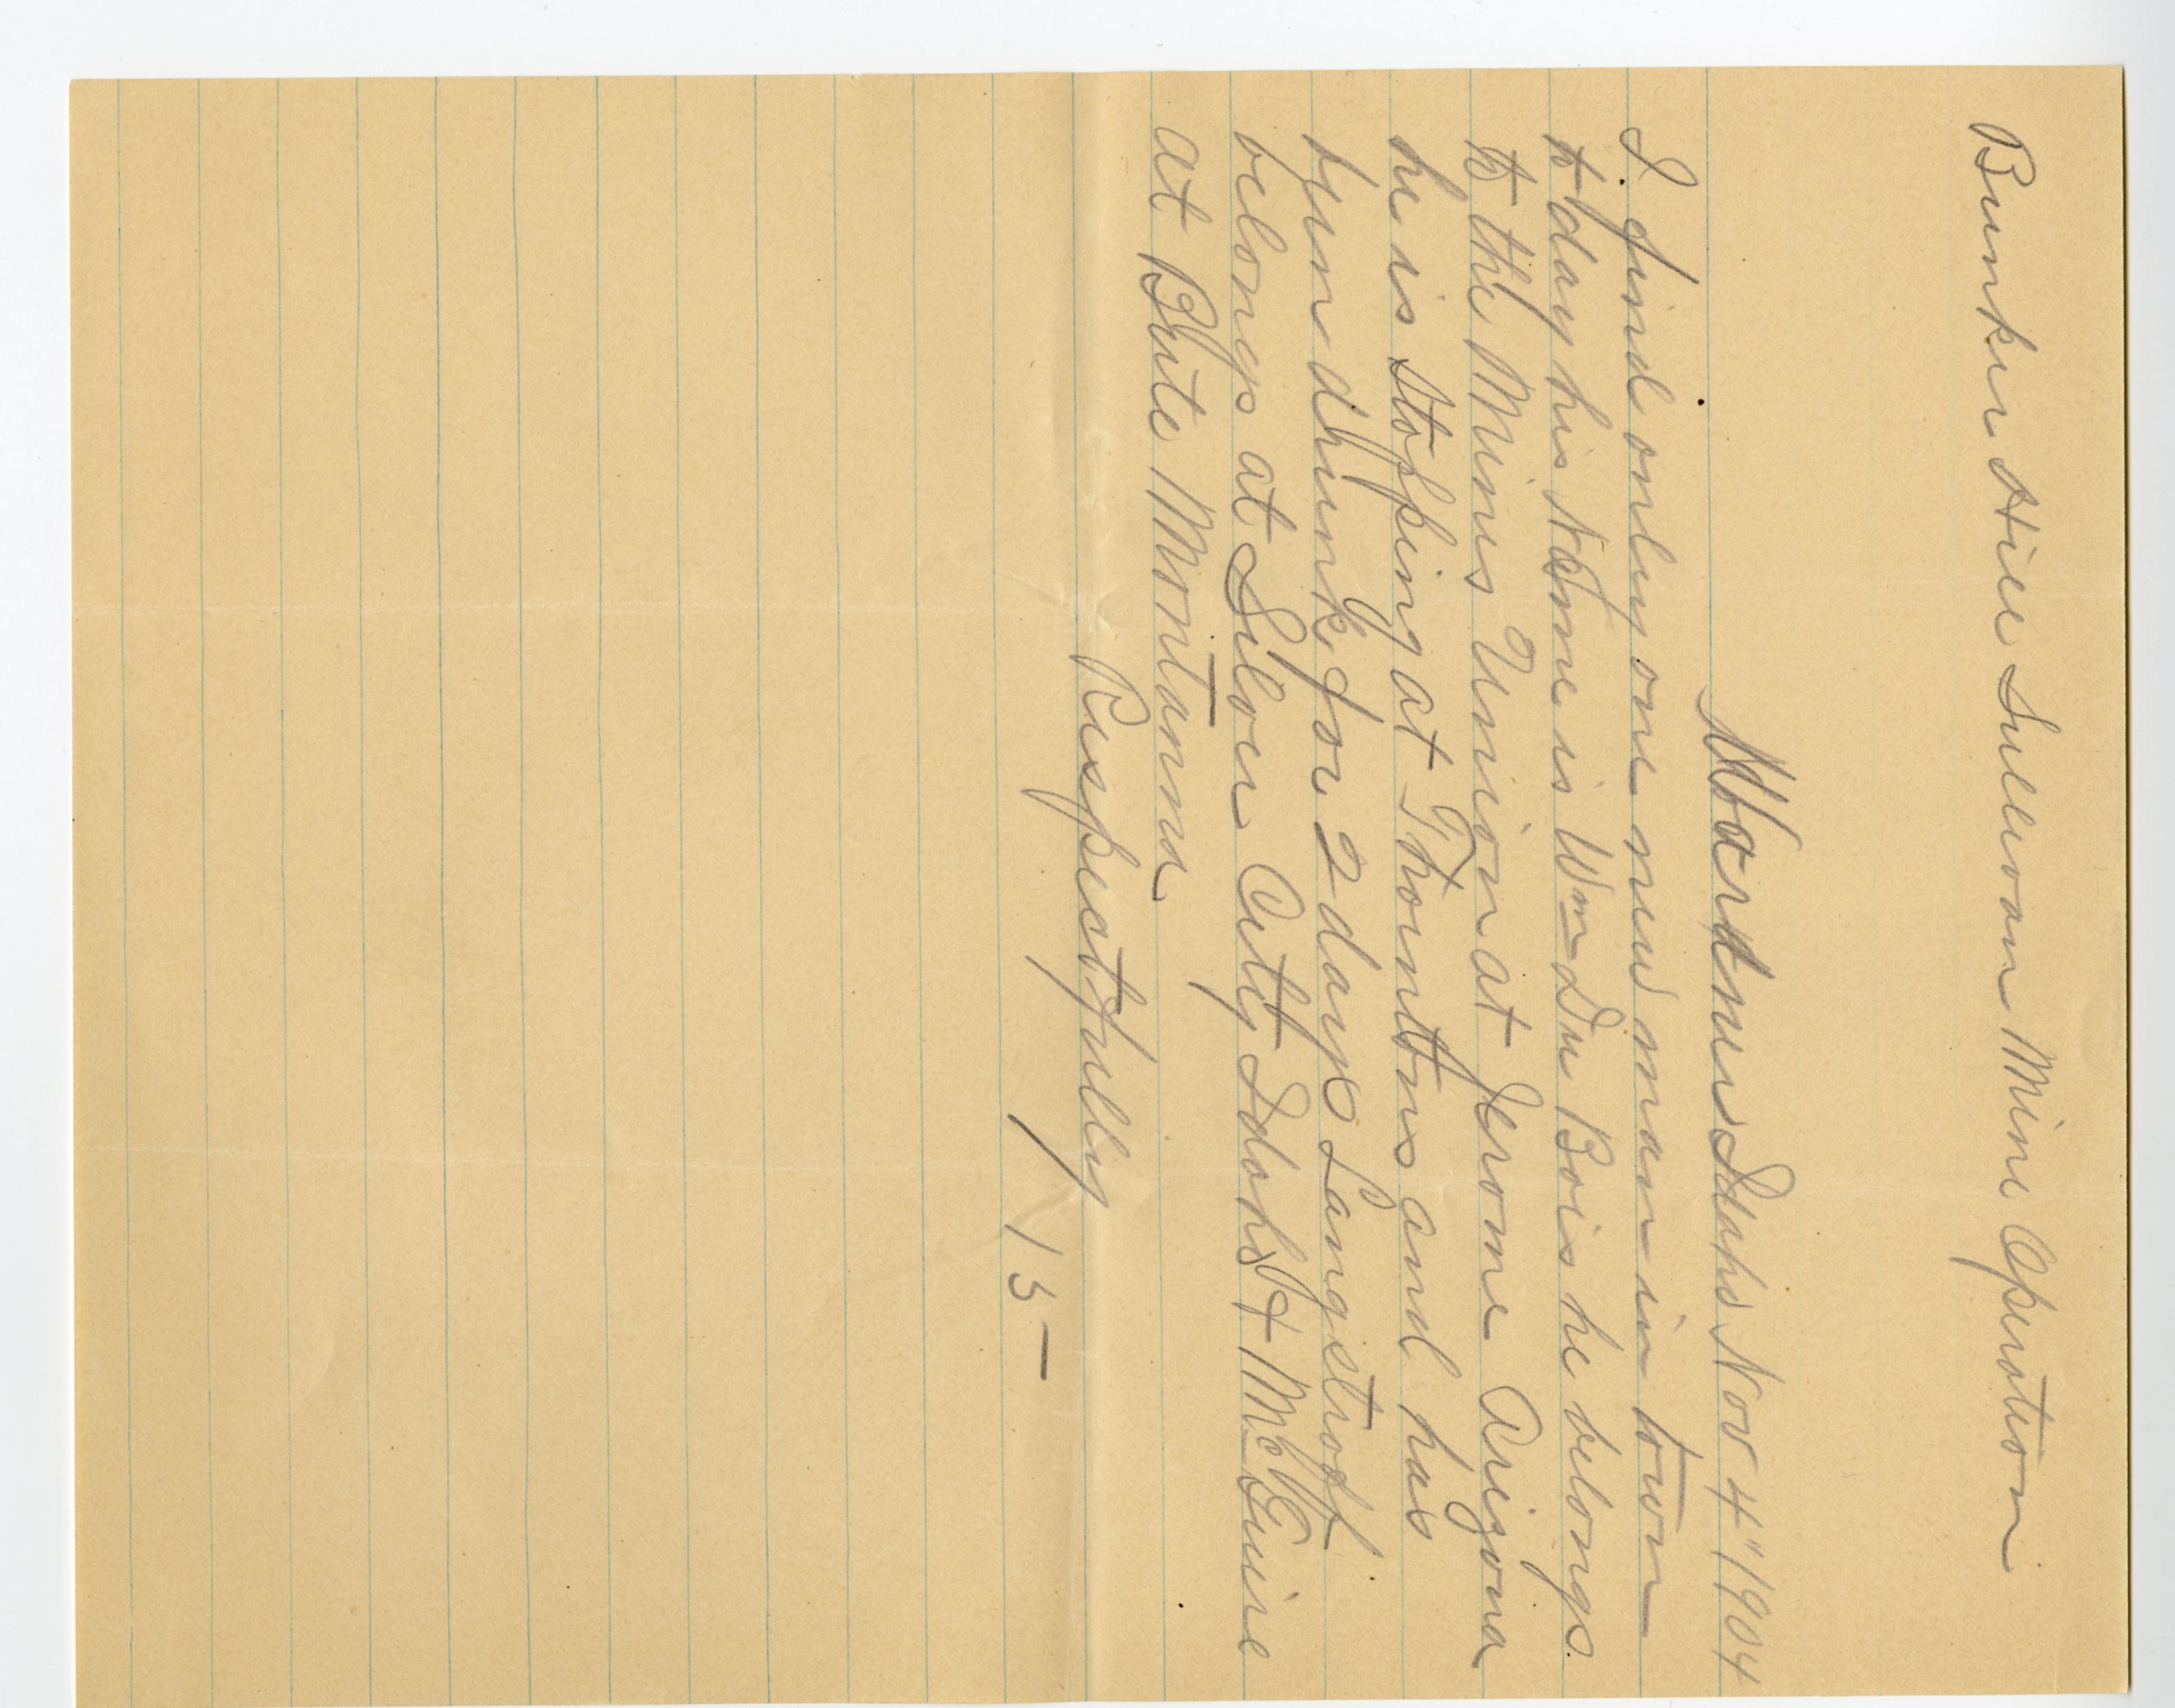 Bunker Hill Sullivan Mine Operation
Wardner Idaho Nov 4" 1904
I. find only one new man in town
to day his Name is Wm Du Bois he belongs
to the Mines Union at Jerome Arizona
he is Stopping at Thorntons and has
bun drunk for 2 days Langstroff
belongs at Silver City Idaho & McGuire
at Bute Montanna
Respectfully
15